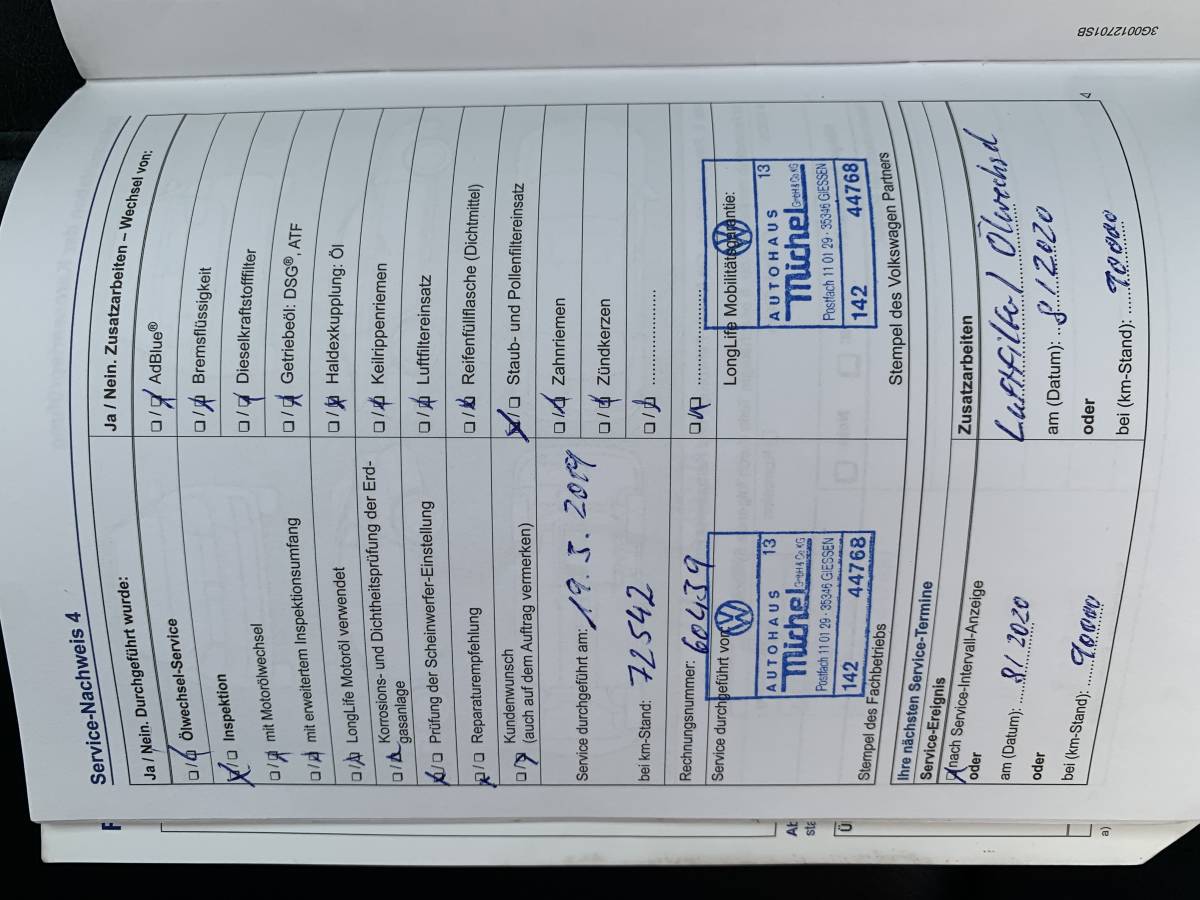 3G0012701SB
Service-Nachweis 4
Ja / Nein. Durchgeführt wurde:
Ölwechsel-Service
Inspektion
mit Motorölwechsel
mit erweitertem Inspektionsumfang
LongLife Motoröl verwendet
Korrosions- und Dichtheitsprüfung der Erd-
gasanlage
Prüfung der Scheinwerfer-Einstellung
Reparaturempfehlung
Kundenwunsch
(auch auf dem Auftrag vermerken)
Service durchgeführt am: 19.5.2019
bei km-Stand: 72542
Rechnungsnummer: 60439
Service durchgeführt von:
AUTOHAUS 13
Michel GmbH & Co. KG
Postfach 11 01 29 · 35346 GIESSEN
142 44768
Stempel des Fachbetriebs
Ja / Nein. Zusatzarbeiten – Wechsel von:
AdBlue®
Bremsflüssigkeit
Dieselkraftstofffilter
Getriebeöl: DSG®, ATF
Haldexkupplung: Öl
Keilrippenriemen
Luftfiltereinsatz
Reifenfüllflasche (Dichtmittel)
Staub- und Pollenfiltereinsatz
Zahnriemen
Zündkerzen
LongLife Mobilitätsgarantie:
AUTOHAUS 13
Michel GmbH & Co. KG
Postfach 11 01 29 · 35346 GIESSEN
142 44768
Stempel des Volkswagen Partners
Ihre nächsten Service-Termine
Service-Ereignis
nach Service-Intervall-Anzeige
oder
am (Datum): 8/2020
oder
bei (km-Stand): 90000
Zusatzarbeiten
Luftfilter / Ölwechsel
am (Datum): 8/2020
oder
bei (km-Stand): 90000
4
a)